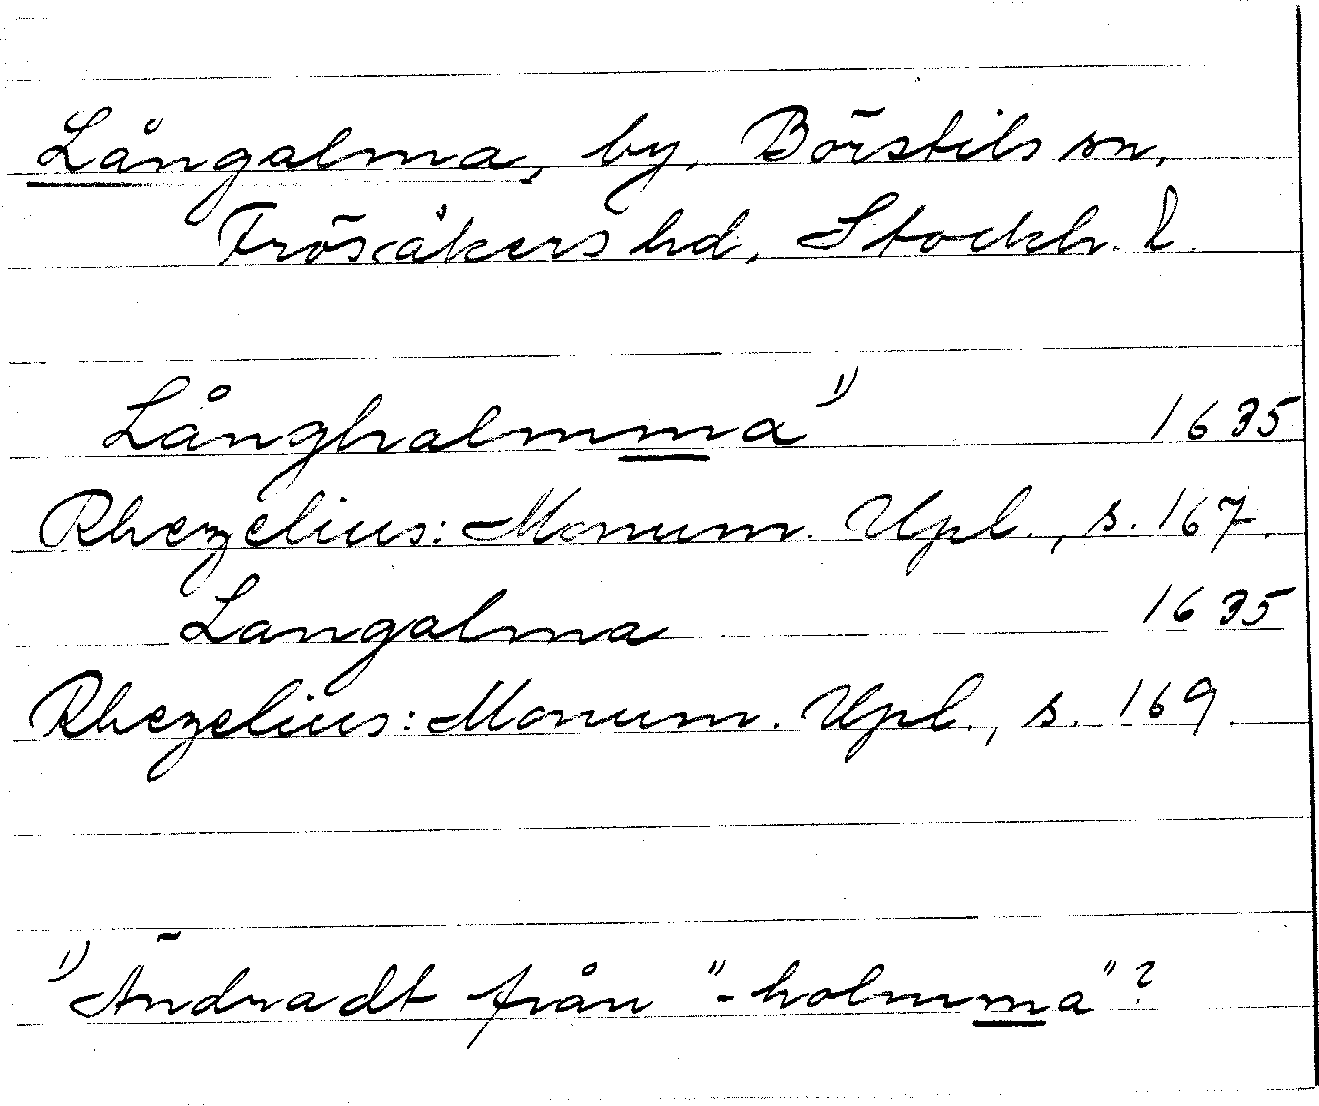 Långalma, by, Börstils sn,
Frösåkers hd, Stockh. l.
Långhalmma 1) 1635
Rhezelius: Monum. Upl., s. 167.
Langalma 1635
Rhezelius: Monum. Upl., s. 169.
1) Ändradt från "-holmma"?